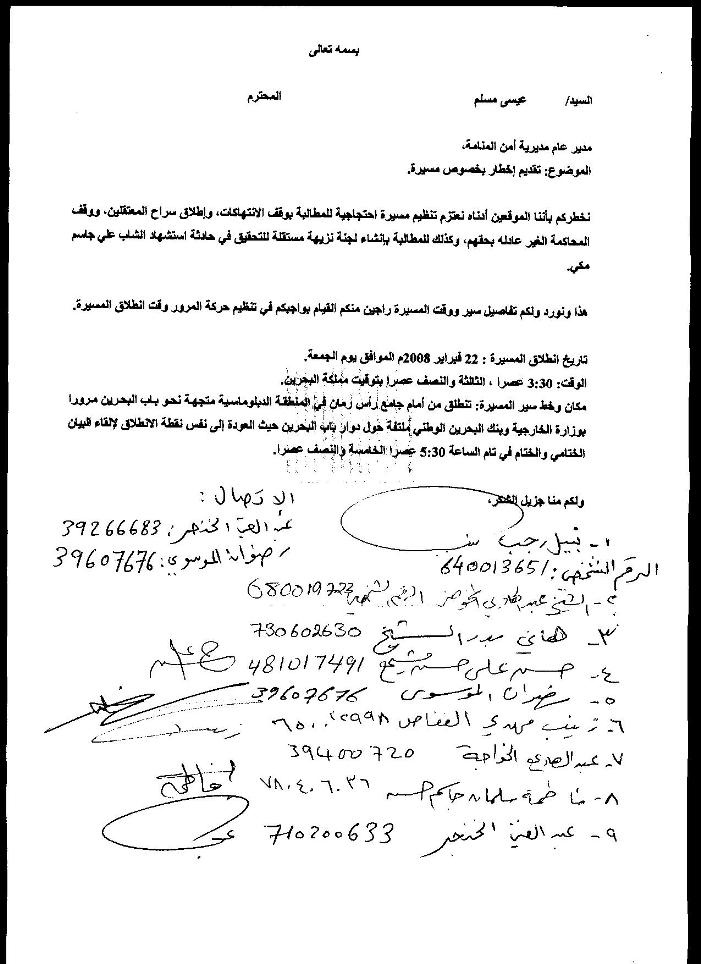 بسمه تعالى
السيد/ عيسى مسلم المحترم
مدير عام مديرية أمن المنامة،
الموضوع: تقديم إخطار بخصوص مسيرة.
نخطركم بأننا الموقعين أدناه نعتزم تنظيم مسيرة احتجاجية للمطالبة بوقف الانتهاكات، وإطلاق سراح المعتقلين، ووقف
المحاكمة الغير عادله بحقهم، وكذلك للمطالبة بإنشاء لجنة نزيهة مستقلة للتحقيق في حادثة استشهاد الشاب علي جاسم
مكي.
هذا ونورد ولكم تفاصيل سير ووقت المسيرة راجين منكم القيام بواجبكم في تنظيم حركة المرور وقت انطلاق المسيرة.
تاريخ انطلاق المسيرة : 22 فبراير 2008م الموافق يوم الجمعة.
الوقت: 3:30 عصرا ، الثالثة والنصف عصرا بتوقيت مملكة البحرين.
مكان وخط سير المسيرة: تنطلق من أمام جامع رأس رمان في المنطقة الدبلوماسية متجهة نحو باب البحرين مرورا
بوزارة الخارجية وبنك البحرين الوطني ملتفة حول دوار باب البحرين حيث العودة إلى نفس نقطة الانطلاق لإلقاء البيان
الختامي والختام في تام الساعة 5:30 عصرا الخامسة والنصف عصرا.
ولكم منا جزيل الشكر،
الاتصال :
عبد العزيز الخنجر: 39266683
رضوان الموسوي: 39607676
١- نبيل رجب
الرقم الشخصي: 640013651
٢- الشيخ عبدالهادي المخوضر الرقم الشخصي 680019723
٣- هاني مدر الشيخ 730602630
٤- حسن علي حسن مشيمع 481017491
٥- رضوان الموسوي 39607676
٦- زينب مهدي العفاص
٧- عبدالهادي الخواجة 39400720
٨- فاطمة سلمان جاسم حسن ٧٨٠٤٠٦٠٣٦ فاطمة
٩- عبد العزيز الخنجر 710200633